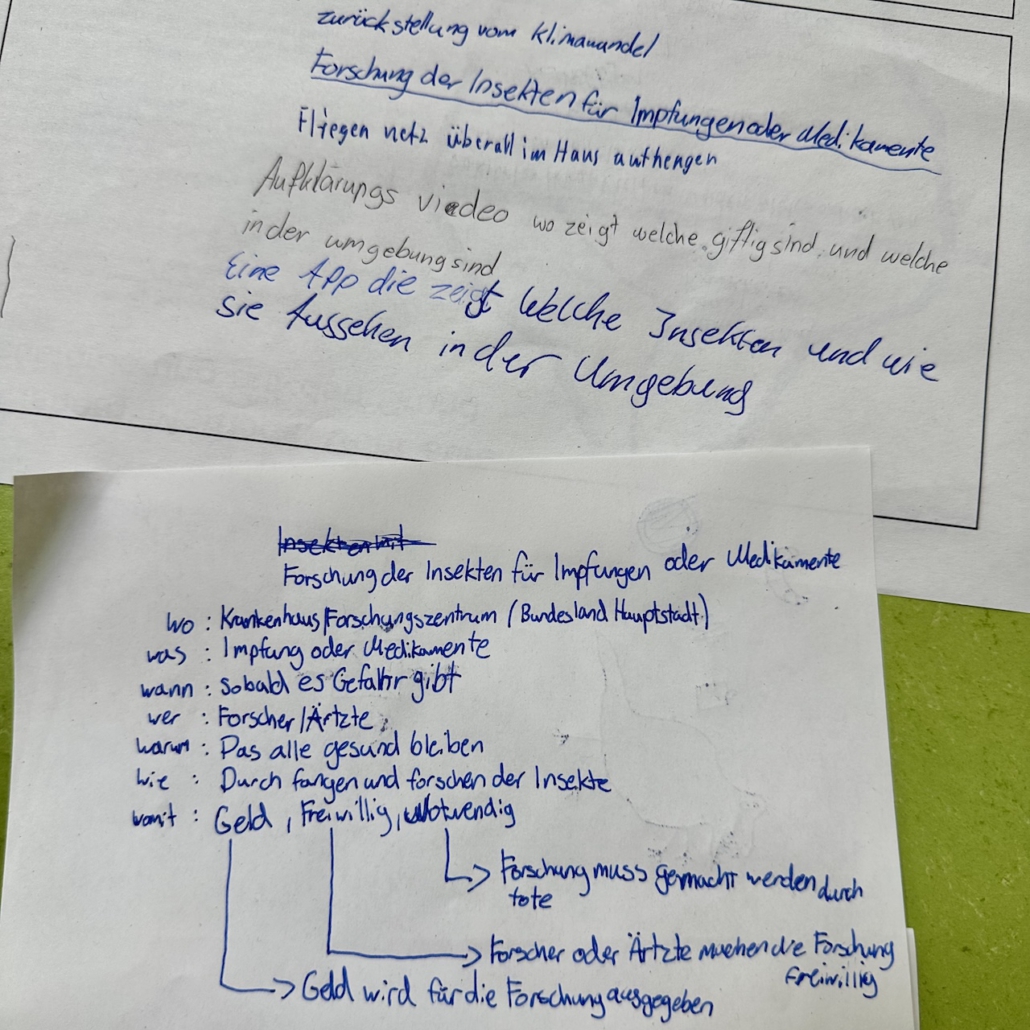 zurückstellung vom klimawandel
Forschung der Insekten für Impfungen oder Medikamente
Fliegen netz überall im Haus aufhengen
Aufklärungs viedeo wo zeigt welche giftig sind, und welche
in der umgebung sind
Eine App die zeigt Welche Insekten und wie
sie Aussehen in der Umgebung
Insekten mit
Forschung der Insekten für Impfungen oder Medikamente
wo : Krankenhaus/Forschungszentrum (Bundesland Hauptstadt)
was : Impfung oder Medikamente
wann : Sobald es Gefahr gibt
wer : Forscher/Ärtzte
warum : Das alle gesund bleiben
wie : Durch fangen und forschen der Insekte
womit : Geld, Freiwillig, Notwendig
Forschung muss gemacht werden durch
tote
Forscher oder Ärtzte machen die Forschung
freiwillig
Geld wird für die Forschung ausgegeben